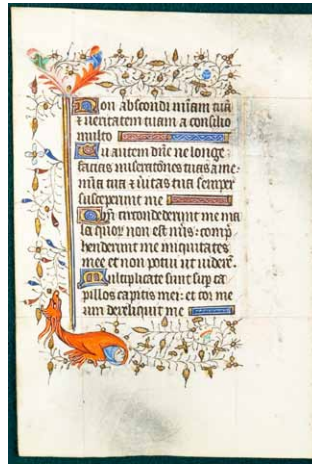 Non abscondi miam tuā
⁊ ueritatem tuam a consilio
multo
Tu autem dn̄e ne longe
facias miserat̄ones tuas a me:
mīa tua ⁊ uītas tua semper
susceperunt me
Qm̄ circumdederunt me ma
la quor̄ non est nūs: comp̄
henderunt me iniquitates
mee et non potui ut uiderē.
Multiplicate sunt sup̄ ca
pillos capitis mei: et cor me
um dereliquit me